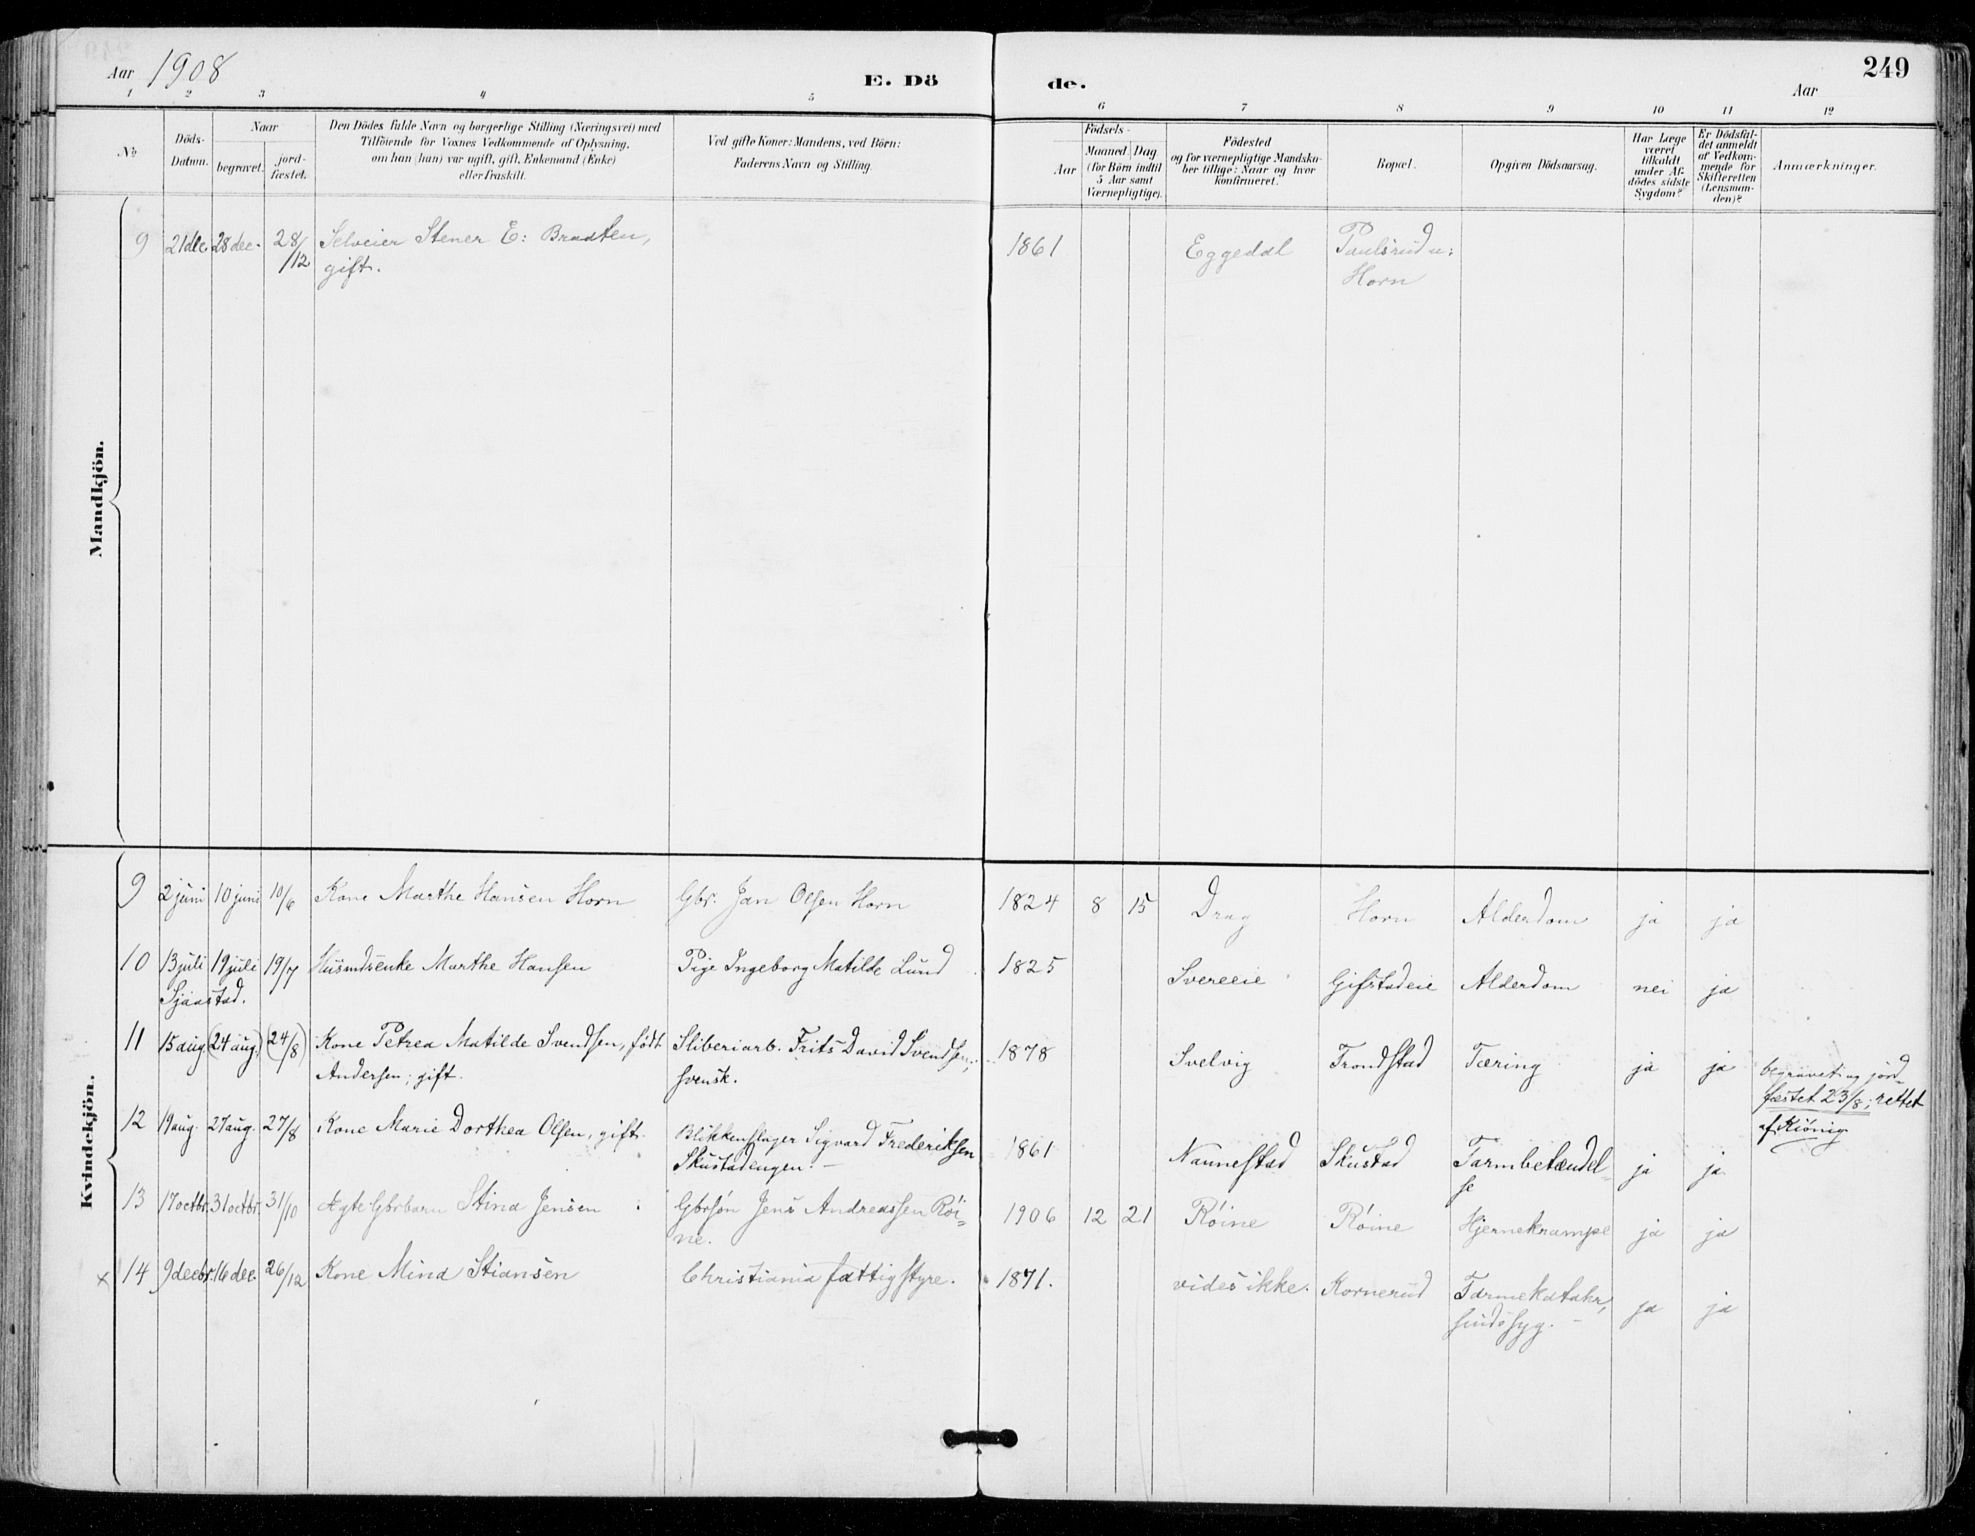 Aar 1908
E. Dö
de.
249
Aar
1 2 3 4 5 6 7 8 9 10 11 12
No
Döds-
Datum.
Naar
begravet.
jord-
fæstet.
Den Dödes fulde Navn og borgerlige Stilling (Næringsvei) med
Tilföiende for Voxnes Vedkommende af Oplysning,
om han (hun) var ugift, gift, Enkemand (Enke)
eller fraskilt.
Ved gifte Koner: Mandens, ved Börn:
Faderens Navn og Stilling.
Födsels-
Aar
Maaned. Dag
(for Börn indtil
5 Aar samt
Værnepligtige).
Födested
og for værnepligtige Mandska-
ber tillige: Naar og hvor
konfirmeret.
Bopæl.
Opgiven Dödsaarsag.
Har Læge
været
tilkaldt
under Af-
dödes sidste
Sygdom?
Er Dödsfal-
det anmeldt
af Vedkom-
mende for
Skifteretten
(Lensman-
den)?
Anmærkninger.
Mandkjön.
9 21 dec. 28 dec. 28/12 Selveier Stener E: Braaten, 1861 Eggedal Paulsrud u:
gift. Horn
Kvindekjön.
9 2 juni 10 juni 10/6 Kone Marthe Hansen Horn Gbr. Jan Olsen Horn 1824 8 15 Drag Horn Alderdom ja ja
10 13 juli 19 juli 19/7 Husmdsenke Marthe Hansen Pige Ingeborg Matilde Lund 1825 Svereeie Gifstadeie Alderdom nei ja
Sjaastad.
11 15 aug. (24 aug.) (24/8) Kone Petrea Matilde Svendsen, født Sliberiarb. Frits David Svendsen, 1878 Svelvig Trondstad Tæring ja ja begravet og jord-
Andersen; gift. svensk. fæstet 23/8; rettet
af Kiönig
12 19 aug. 27 aug. 27/8 Kone Marie Dorthea Olsen, gift. Blikkenslager Sigvard Frederiksen 1861 Nannestad Skustad Tarmbetændel-
Skustadengen. se ja ja
13 17 octbr. 31 octbr. 31/10 Ægte Gbrbarn Stina Jensen Gbrsøn Jens Andreassen Røi- 1906 12 21 Røine Røine Hjernekrampe ja ja
ne.
x 14 9 decbr. 16 dec. 26/12 Kone Mina Stiansen Christiania fattigstyre. 1871. vides ikke. Kornerud Tarmekatahr, ja ja
sindssyg.